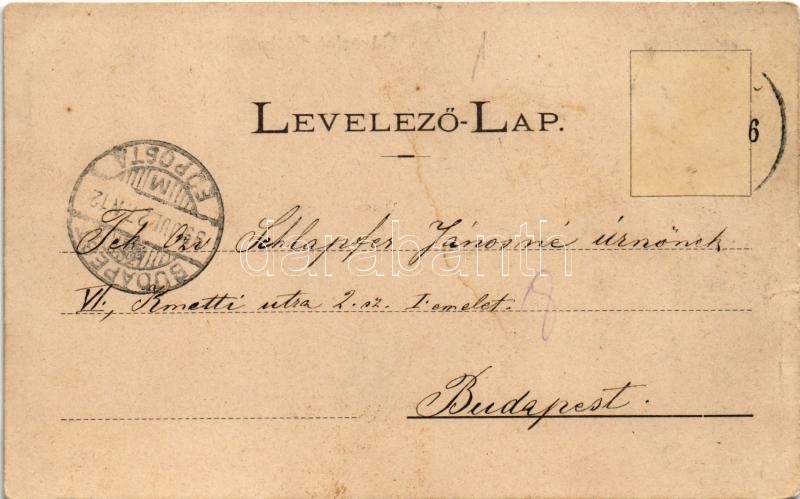 LEVELEZŐ-LAP.
6
BUDAPEST
FŐPOSTA
M
Tek. Özv. Schlapfer Jánosné úrnőnek
VI, Kmetti utca 2. sz. I. emelet.
Budapest.
darabanth